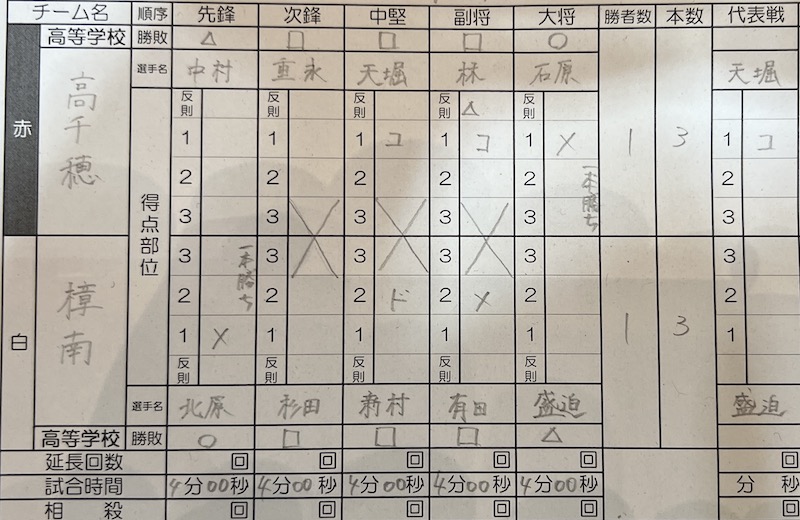 チーム名 順序 先鋒 次鋒 中堅 副将 大将 勝者数 本数 代表戦
高等学校 勝敗 △ □ □ □ ○
選手名 中村 重永 天堀 林 石原 天堀
赤 高千穂
得点部位
反則 反則 反則 反則 △ 反則
1 1 1 コ 1 コ 1 メ 1 3 1 コ
2 2 2 2 2 一本勝ち 2
3 3 3 3 3 3
白 樟南
3 一本勝ち 3 3 3 3 3
2 2 2 ド 2 メ 2 2
1 メ 1 1 1 1 1 3 1
反則 反則 反則 反則 反則
選手名 北原 杉田 新村 有田 盛迫 盛迫
高等学校 勝敗 ○ □ □ □ △
延長回数 回 回 回 回 回 回
試合時間 4分00秒 4分00秒 4分00秒 4分00秒 4分00秒 分 秒
相殺 回 回 回 回 回 回